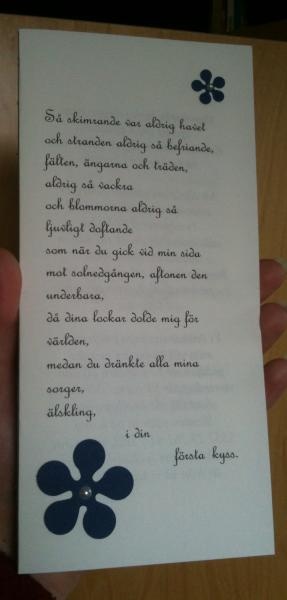 Så skimrande var aldrig havet
och stranden aldrig så befriande,
fälten, ängarna och träden,
aldrig så vackra
och blommorna aldrig så
ljuvligt doftande
som när du gick vid min sida
mot solnedgången, aftonen den
underbara,
då dina lockar dolde mig för
världen,
medan du dränkte alla mina
sorger,
älskling,
i din
första kyss.